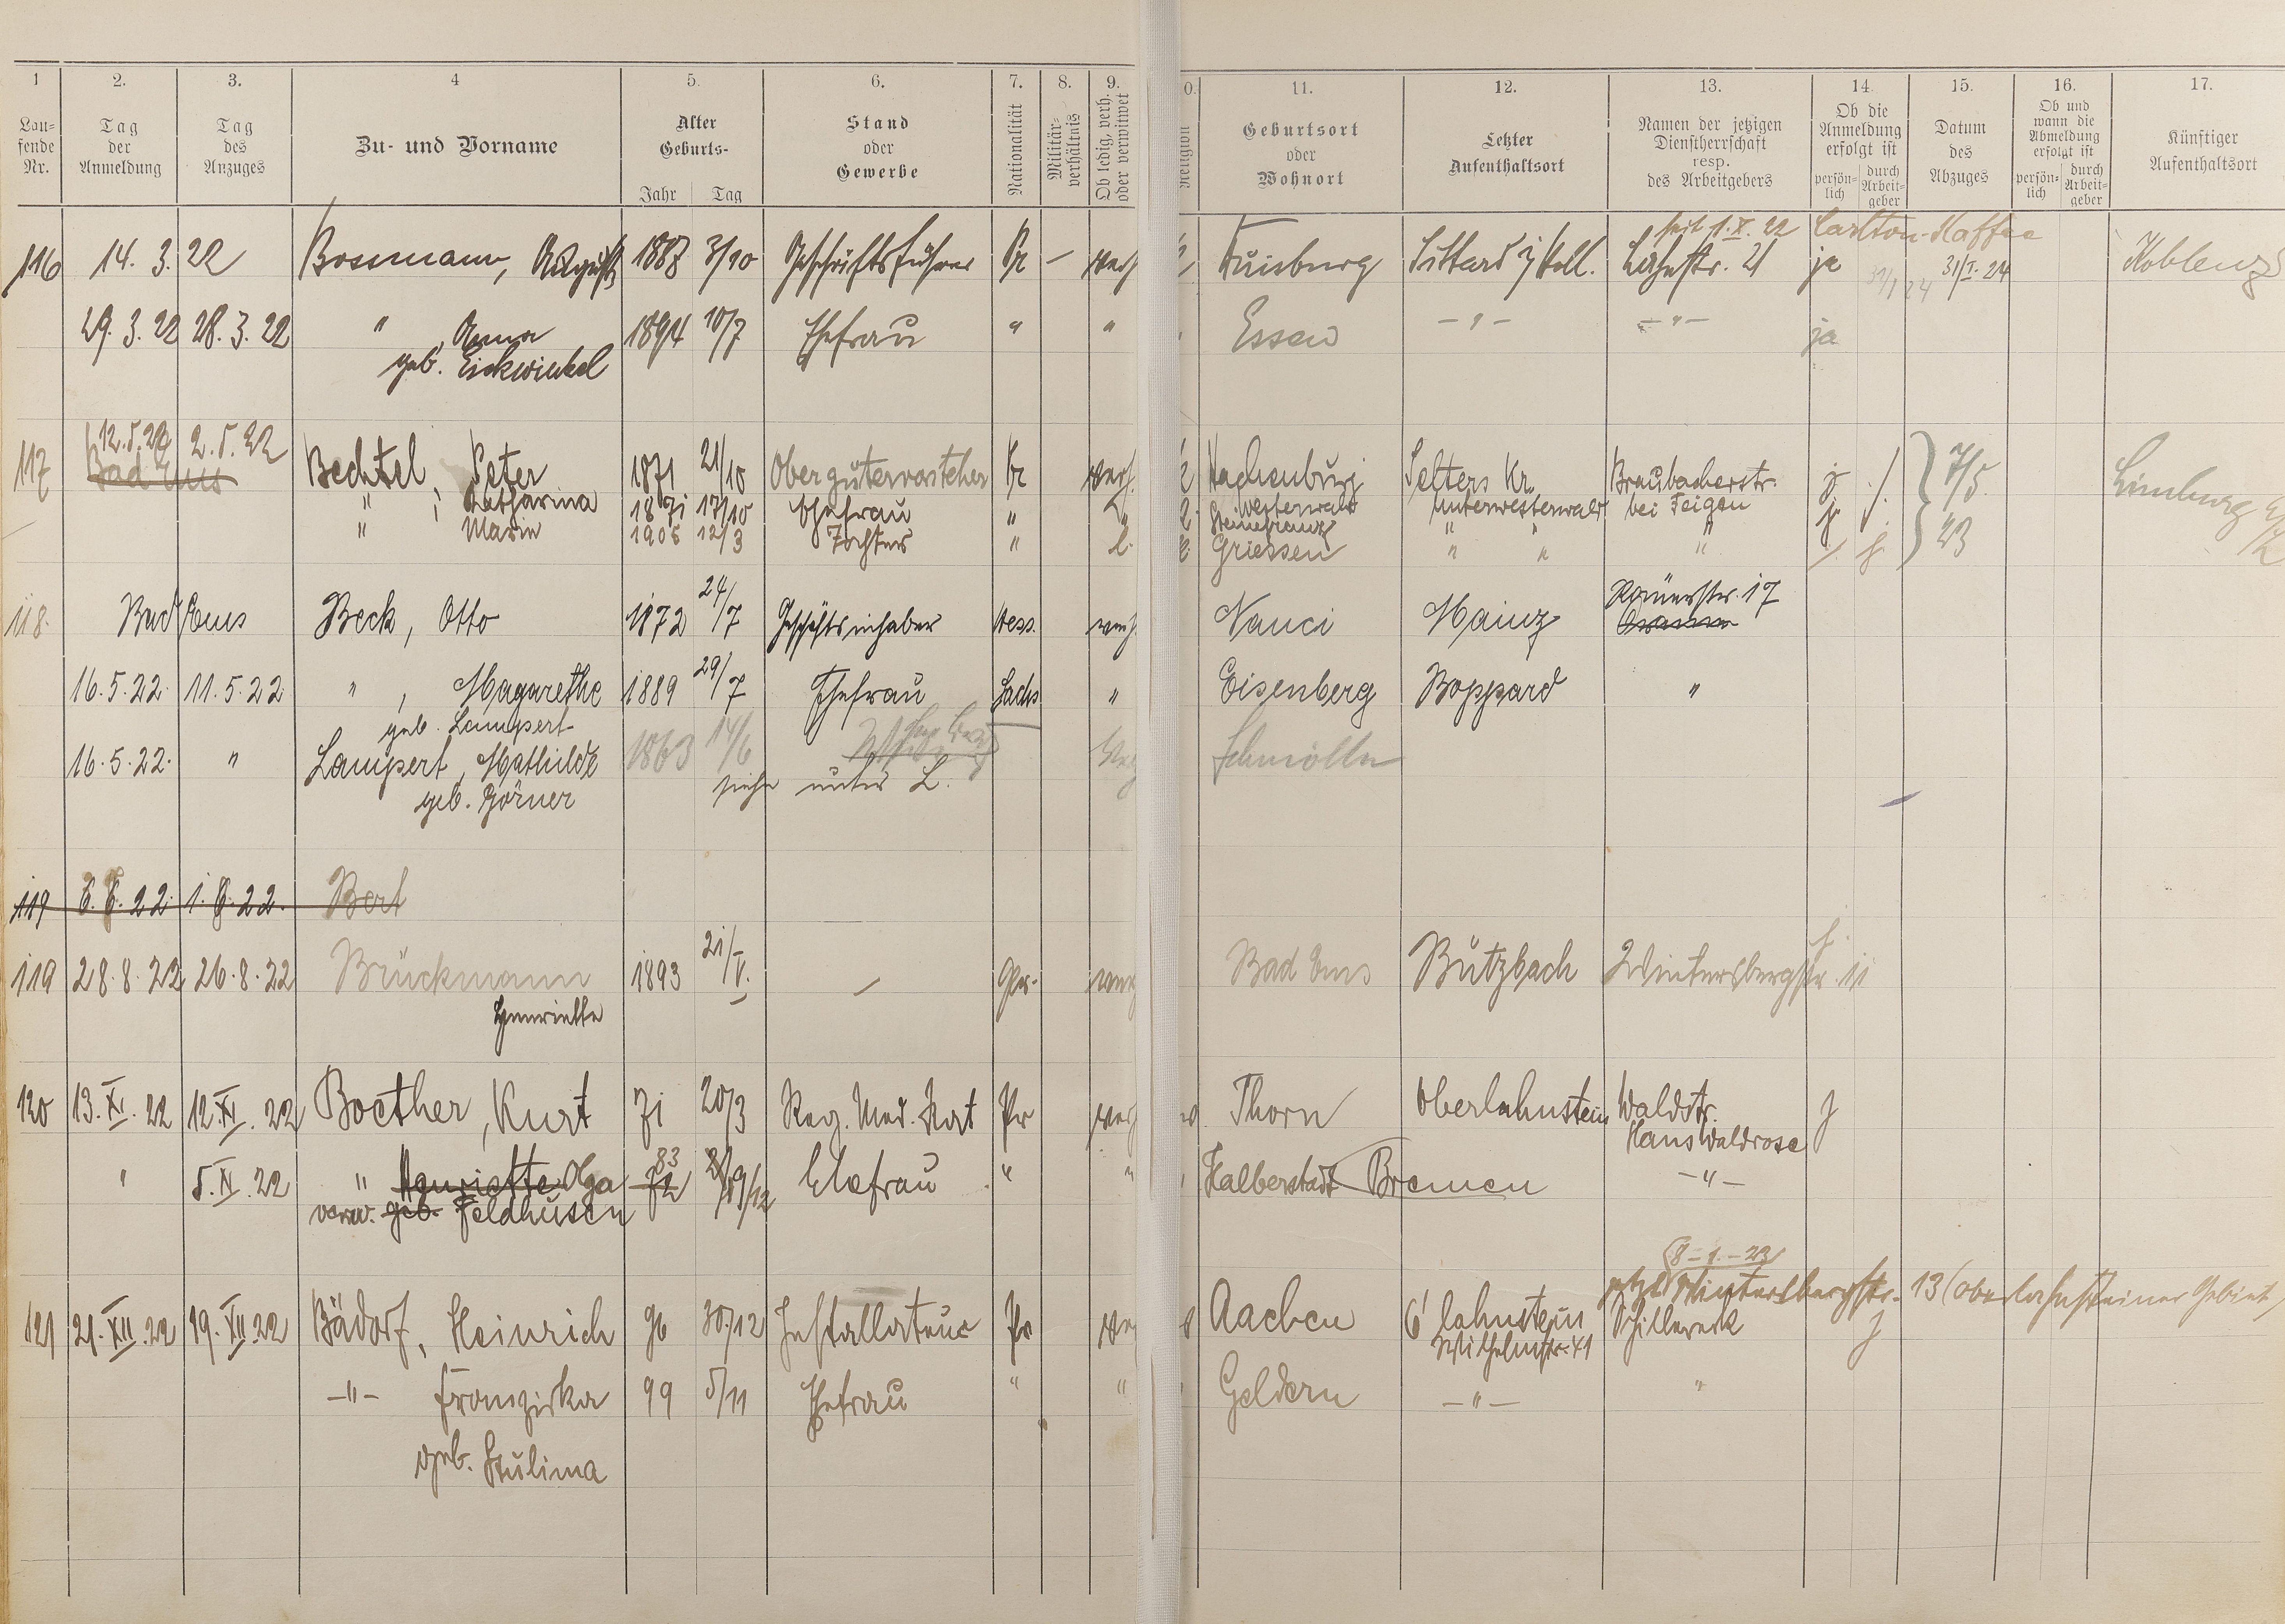 1 2. 3. 4 5. 6. 7. 8. 9. 0. 11. 12. 13. 14. 15. 16. 17.
Lau-fende Nr. Tag der Anmeldung Tag des Anzuges Zu- und Vorname Alter Geburts- Jahr Tag Stand oder Gewerbe Nationalität Militär-verhältnis Ob ledig, verh. oder verwitwet Religion Geburtsort oder Wohnort Letzter Aufenthaltsort Namen der jetzigen Dienstherrschaft resp. des Arbeitgebers Ob die Anmeldung erfolgt ist persön-lich durch Arbeit-geber Datum des Abzuges Ob und wann die Abmeldung erfolgt ist persön-lich durch Arbeit-geber Künftiger Aufenthaltsort
seit 1.X.22 Carlton-Kaffee
116 14. 3. 22 Bossmann, August 1887 3/10 Geschäftsführer Pr — verh Duisburg Sittard i/Holl. Lahnstr. 21 ja 31/1 24 31/I. 24 Koblenz
29. 3. 22 28. 3. 22 " , Anna 1894 10/7 Ehefrau " " Essen — " — — " — ja
geb. Eickwinkel
12.5.22 2.5.22
117 Bad Ems Bechtel, Peter 1871 21/10 Obergütervorsteher Pr verh. Hachenburg Selters Kr. Braubacherstr. j /. 7/5. Limburg
Westerwald Unterwesterwald bei Feigen
" , Katharina 1871 17/10 Ehefrau " "
" Marie 1905 12/3 Tochter " l. Griessen " " " 23
118. Bad Ems Beck, Otto 1872 24/7 Geschäftsinhaber Hess. verh. Nanci Mainz Römerstr. 17
16.5.22 11.5.22 " , Magarethe 1889 29/7 Ehefrau Sachs " Eisenberg Boppard "
geb. Lampert
16.5.22. " Lampert, Mathilde 1863 14/6 Schmölln
geb. Görner siehe unter L.
119 6.6.22. 1.6.22. Bert
119 28.8.22 26.8.22 Brückmann 1893 21/V. — verh Bad Ems Bützbach Wintersbergstr. 11 j.
Henriette
120 13.XI.22 12.XI.22 Boether, Kurt 71 20/3 Reg. Med. Rat Pr verh Thorn Oberlahnstein Waldstr. j
Haus Waldrose
" 5.XI.22 " Henriette Olga 72 83 19/12 Ehefrau " " Halberstadt Bremen — " —
verw. geb. Feldhusen
8-1.-23
jetzt Wintersbergstr. 13 (Oberlahnsteiner Gebiet)
121 21.XII.22 19.XII.22 Bädorf, Heinrich 96 30./12 Installateur Pr Aachen O'lahnstein Schillereck j
Wilhelmstr. 41
— " — Franziska 99 5/11 Ehefrau " " Geldern — " — "
geb. Stulima